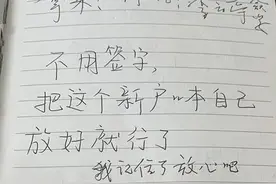 不用签字，
把这个新户口本自己
放好就行了
我记住了放心吧